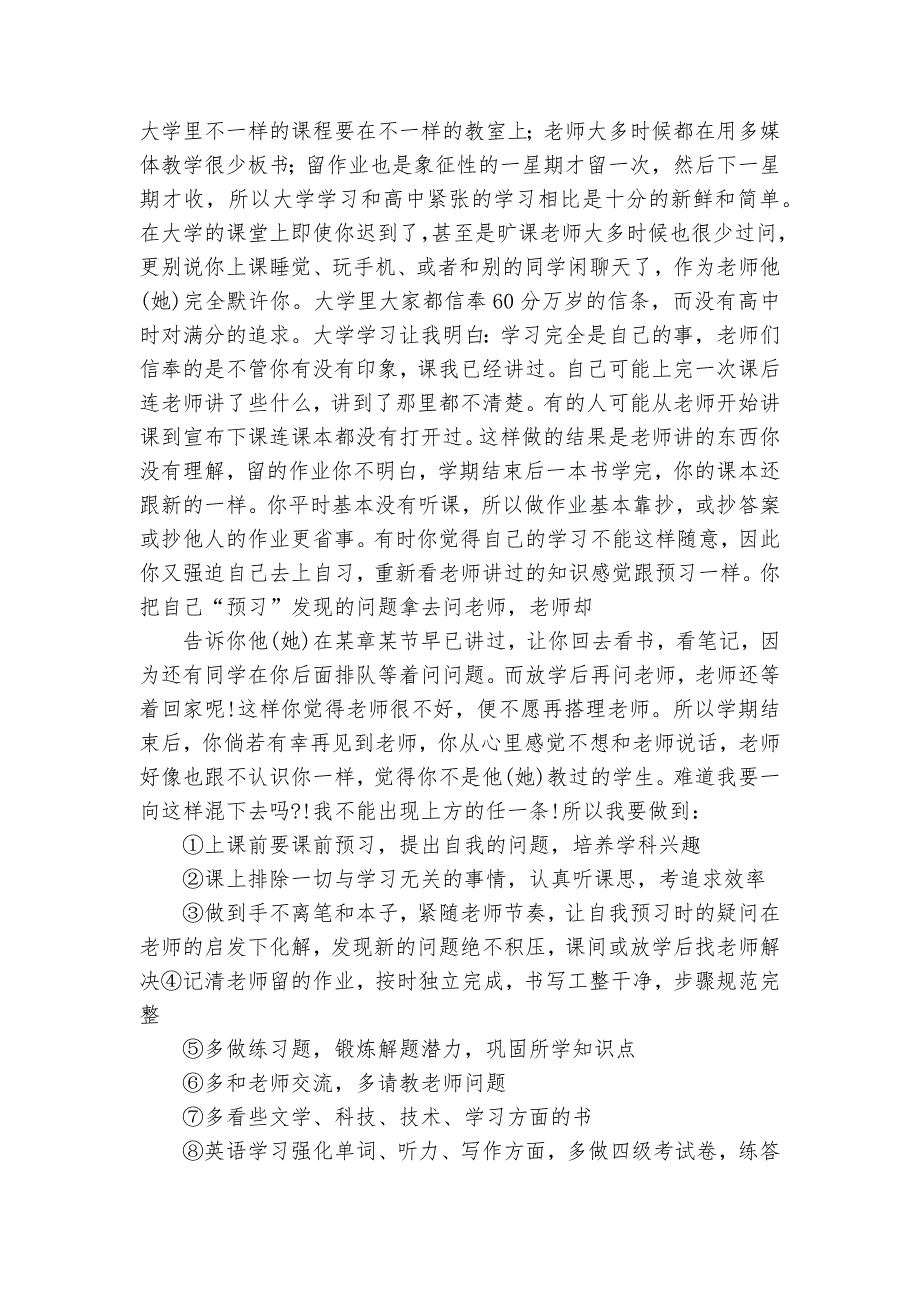 大学里不一样的课程要在不一样的教室上；老师大多时候都在用多媒
体教学很少板书；留作业也是象征性的一星期才留一次，然后下一星
期才收，所以大学学习和高中紧张的学习相比是十分的新鲜和简单。
在大学的课堂上即使你迟到了，甚至是旷课老师大多时候也很少过问，
更别说你上课睡觉、玩手机、或者和别的同学闲聊天了，作为老师他
(她)完全默许你。大学里大家都信奉 60 分万岁的信条，而没有高中
时对满分的追求。大学学习让我明白：学习完全是自己的事，老师们
信奉的是不管你有没有印象，课我已经讲过。自己可能上完一次课后
连老师讲了些什么，讲到了那里都不清楚。有的人可能从老师开始讲
课到宣布下课连课本都没有打开过。这样做的结果是老师讲的东西你
没有理解，留的作业你不明白，学期结束后一本书学完，你的课本还
跟新的一样。你平时基本没有听课，所以做作业基本靠抄，或抄答案
或抄他人的作业更省事。有时你觉得自己的学习不能这样随意，因此
你又强迫自己去上自习，重新看老师讲过的知识感觉跟预习一样。你
把自己“预习”发现的问题拿去问老师，老师却
告诉你他(她)在某章某节早已讲过，让你回去看书，看笔记，因
为还有同学在你后面排队等着问问题。而放学后再问老师，老师还等
着回家呢!这样你觉得老师很不好，便不愿再搭理老师。所以学期结
束后，你倘若有幸再见到老师，你从心里感觉不想和老师说话，老师
好像也跟不认识你一样，觉得你不是他(她)教过的学生。难道我要一
向这样混下去吗?!我不能出现上方的任一条!所以我要做到：
①上课前要课前预习，提出自我的问题，培养学科兴趣
②课上排除一切与学习无关的事情，认真听课思，考追求效率
③做到手不离笔和本子，紧随老师节奏，让自我预习时的疑问在
老师的启发下化解，发现新的问题绝不积压，课间或放学后找老师解
决④记清老师留的作业，按时独立完成，书写工整干净，步骤规范完
整
⑤多做练习题，锻炼解题潜力，巩固所学知识点
⑥多和老师交流，多请教老师问题
⑦多看些文学、科技、技术、学习方面的书
⑧英语学习强化单词、听力、写作方面，多做四级考试卷，练答